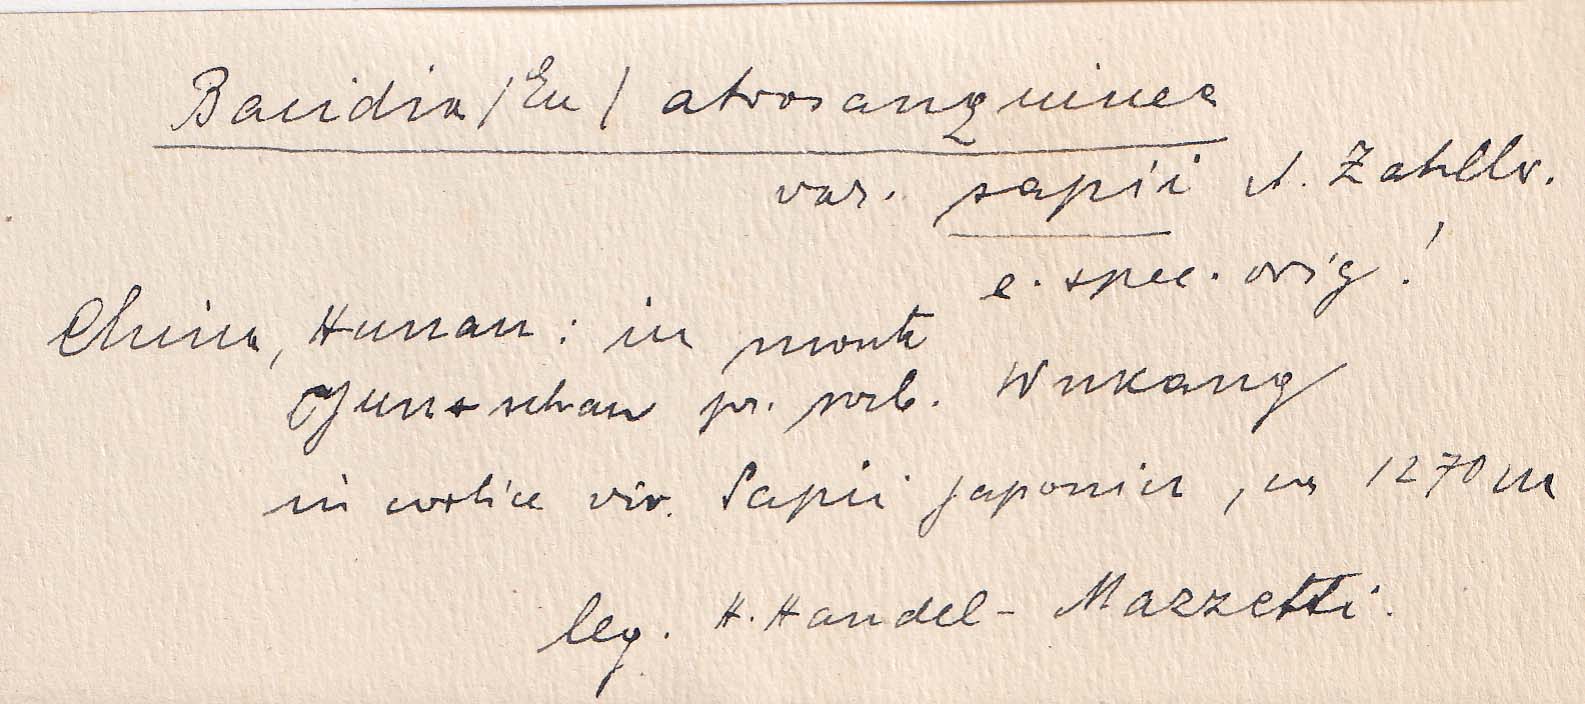 Bacidia /Eu/ atrosanguinea
var. sapii A. Zahlbr.
e. spec. orig!
China, Hunan: in monte
Yün-schan pr. urb. Wukang
in cortice viv. Sapii japonici, ca 1270 m
leg. H. Handel-Mazzetti.